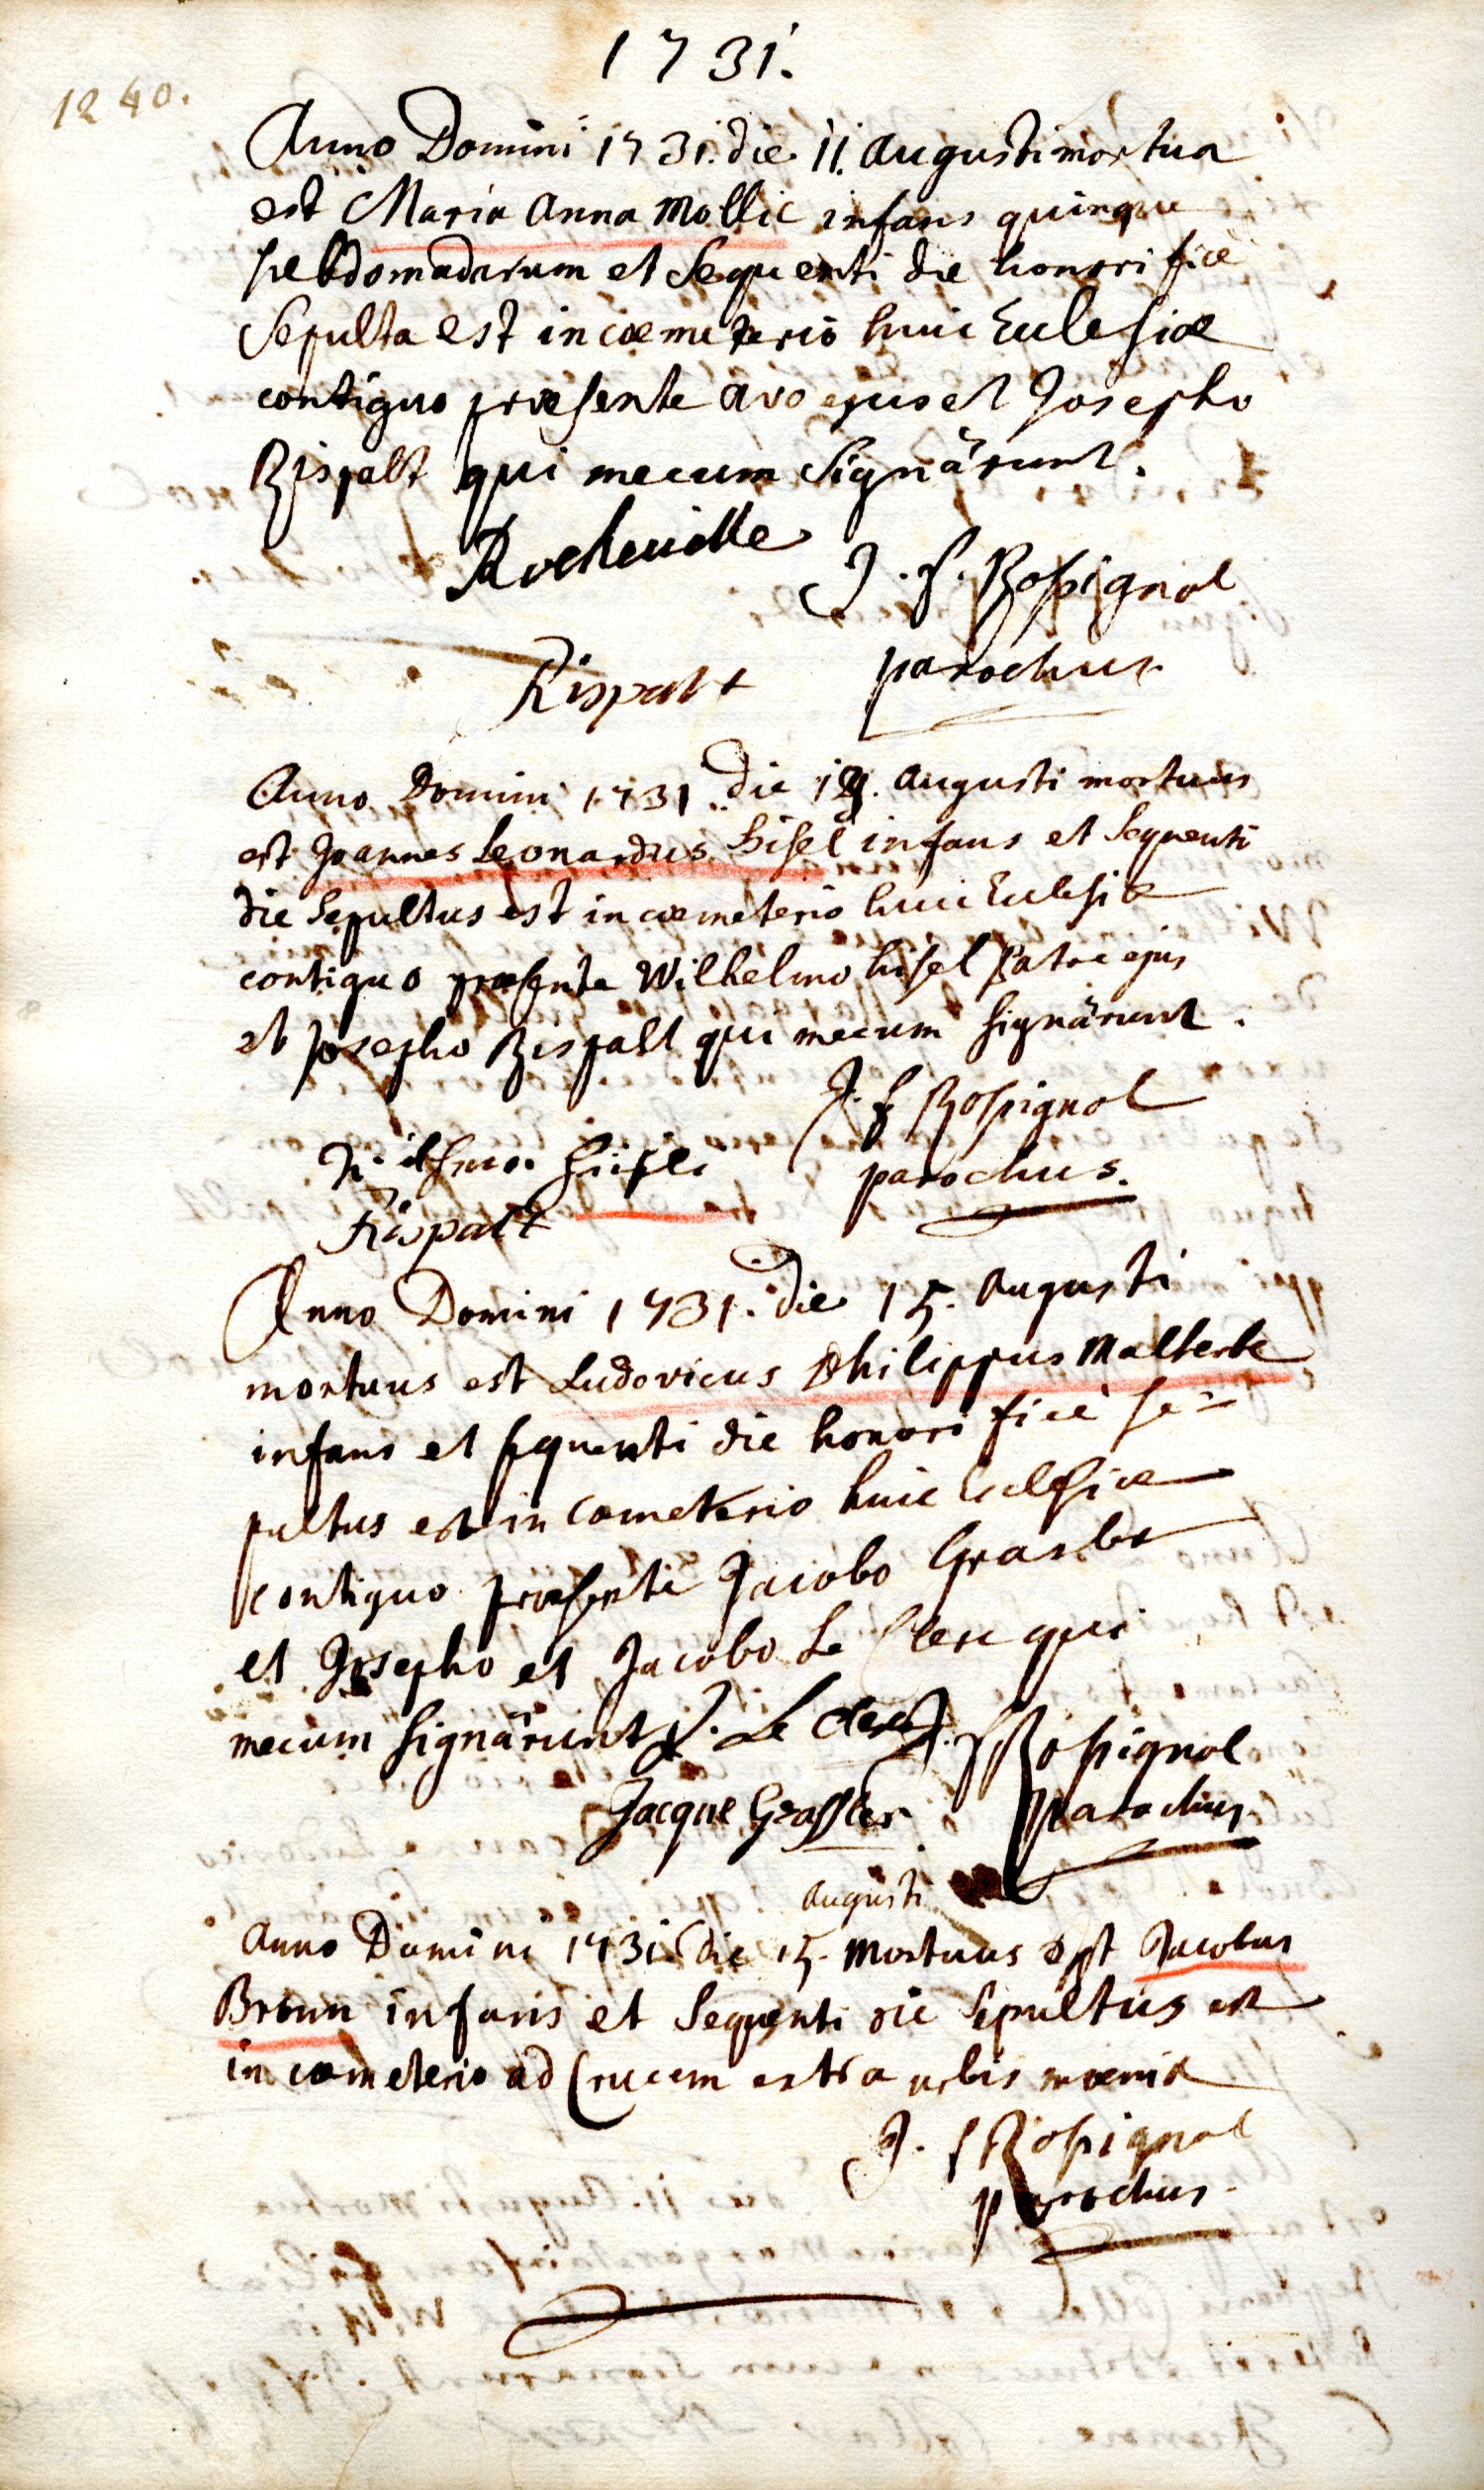 1731.
1240.
Anno Domini 1731. die 11. augusti mortua
est Maria anna Mollic infans quinque
hebdomadarum et Sequenti die honorifice
Sepulta est in coemeterio huic Eclesiae
contiguo praesente avo ejus et Josepho
Rispalt qui mecum Signârunt.
Rocheville J. f. Rosignol
Rispalt parochus
Anno Domini 1731. die augusti mortuus
est Joannes Leonardus hisel infans et Sequenti
die Sepultus est in coemeterio huic Eclesiae
contiguo praesente Wilhelmo hisel Patre ejus
et Josepho Rispalt qui mecum signârunt.
J. f Rosignol
parochus.
Rispalt
Anno Domini 1731. die 15. augusti
mortuus est Ludovicus Philippus Malherbe
infans et sequenti die honorifice se-
pultus est in Coemeterio huic Eclesiae
contiguo praesente Jacobo
et Josepho et Jacobo Le Clerc qui
mecum signârunt J. Le Clerc J. f Rosignol
Jacque Grassler parochus
augusti
Anno Domini 1731. die 15. mortuus est Jacobus
Broun infans et Sequenti die Sepultus est
in coemeterio ad Crucem extra urbis moenia
J. f Rosignol
parochus